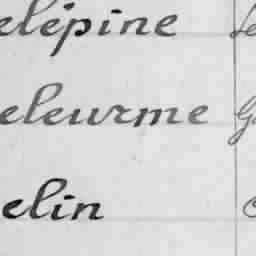 elépine Le
eleurme G
elin